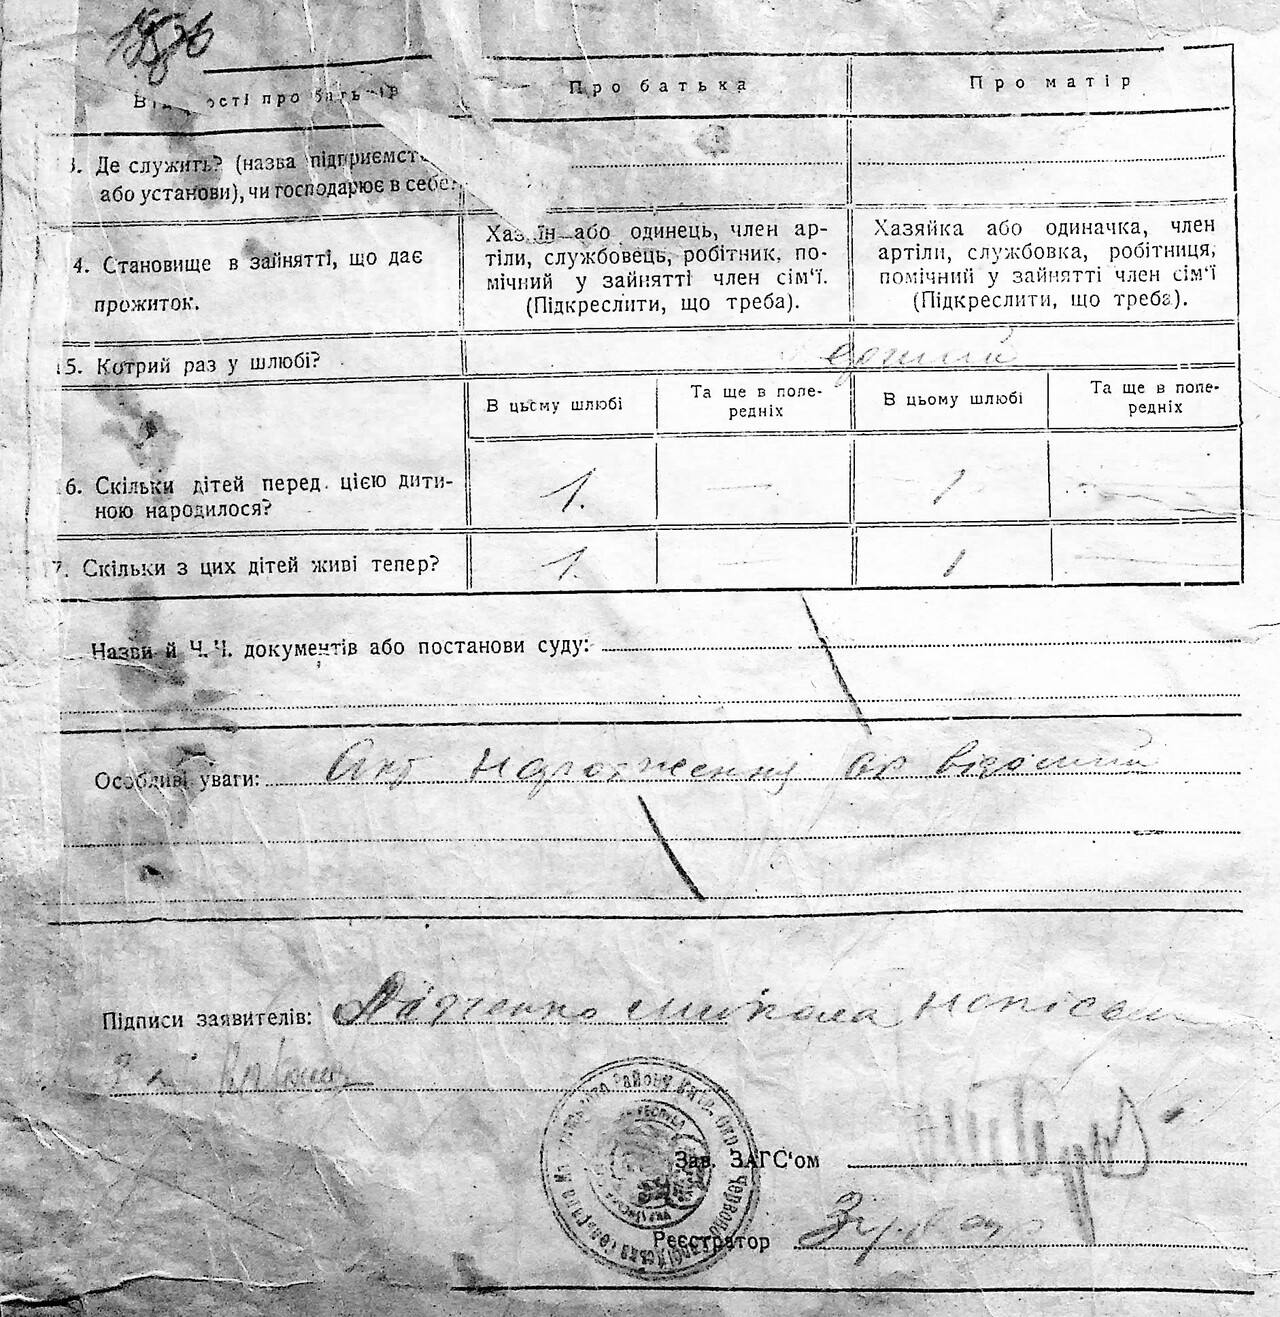 Про батька
Про матір
Де служить? (назва підприємст
або установи), чи господарює в себе?
4. Становище в зайнятті, що дає
прожиток.
Хазяїн або одинець, член ар-
тіли, службовець, робітник, по-
мічний у зайнятті член сім'ї.
(Підкреслити, що треба).
Хазяйка або одиначка, член
артіли, службовка, робітниця,
помічний у зайнятті член сім'ї
(Підкреслити, що треба).
15. Котрий раз у шлюбі?
В цьому шлюбі
Та ще в попе-
редніх
В цьому шлюбі
Та ще в попе-
редніх
6. Скільки дітей перед цією дити-
ною народилося?
1.
—
1
—
7. Скільки з цих дітей живі тепер?
1.
—
1
—
Назви й Ч.Ч. документів або постанови суду:
Особливі уваги: Акт народження
Підписи заявителів: Микола
Зав. ЗАГС'ом
Реєстратор